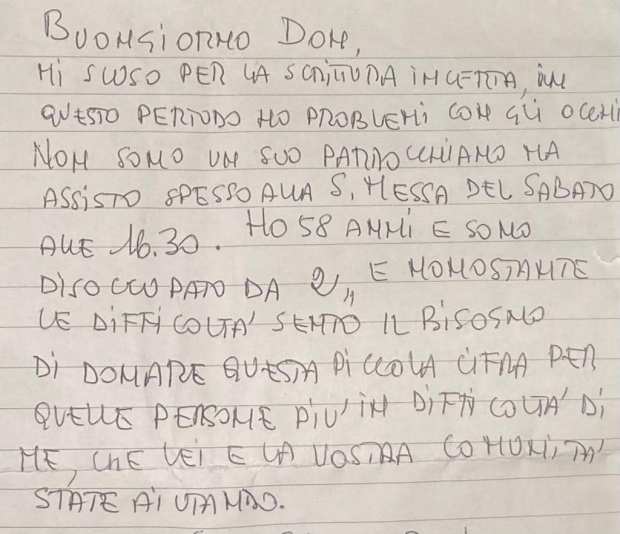 BUONGIORNO DON,
MI SCUSO PER LA SCRITTURA INCERTA, IN
QUESTO PERIODO HO PROBLEMI CON GLI OCCHI
NON SONO UN SUO PARROCCHIANO MA
ASSISTO SPESSO ALLA S. MESSA DEL SABATO
ALLE 16.30. HO 58 ANNI E SONO
DISOCCUPATO DA 2, E NONOSTANTE
LE DIFFICOLTA' SENTO IL BISOGNO
DI DONARE QUESTA PICCOLA CIFRA PER
QUELLE PERSONE PIU' IN DIFFICOLTA' DI
ME, CHE LEI E LA VOSTRA COMUNITA'
STATE AIUTANDO.